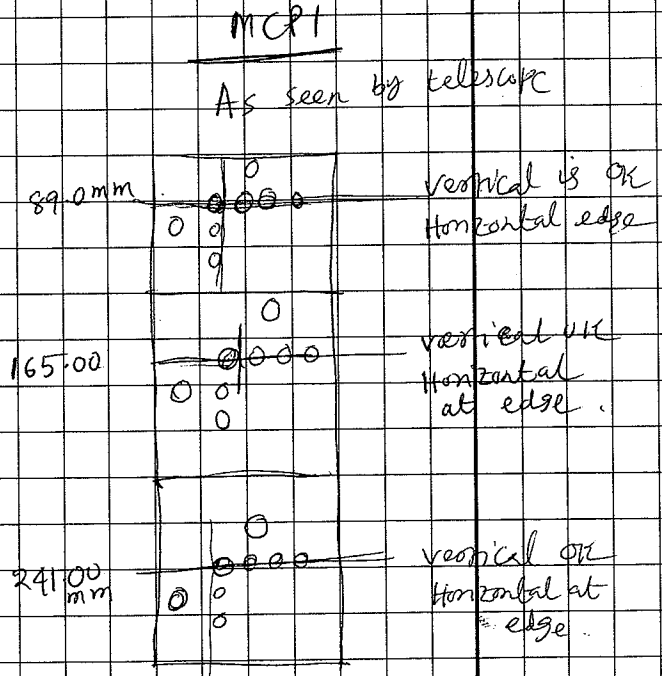 MCP1
As seen by telescope
89.0mm
vertical is OK
Horizontal edge
165.00
vertical OK
Horizontal
at edge.
241.00
mm
vertical OK
Horizontal at
edge.